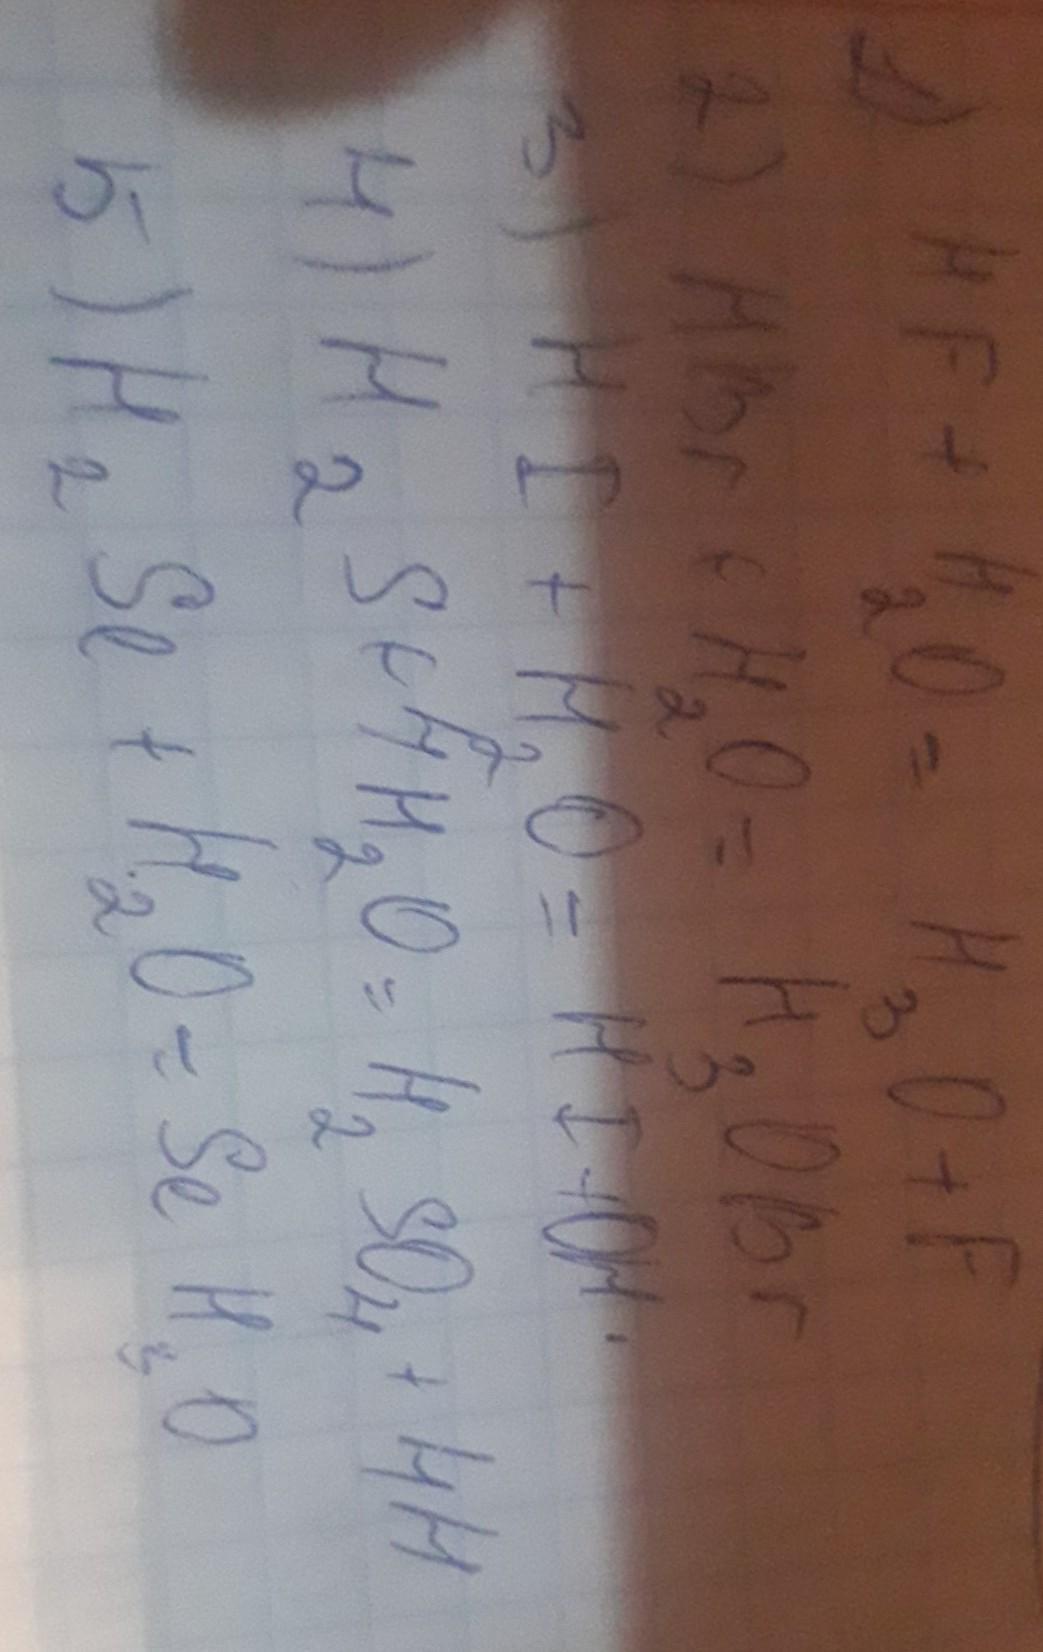 1) HF + H2O = H3O + F
2) HBr + H2O = H3OBr
3) HI + H2O = HI + OH
4) H2S + 4H2O = H2SO4 + 4H
5) H2Se + H2O = SeH2O